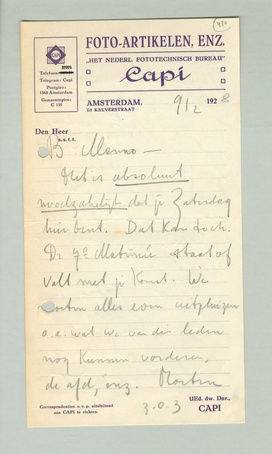 FOTO-ARTIKELEN, ENZ.
"HET NEDERL. FOTOTECHNISCH BUREAU"
Capi
CAPI
Telefoon
Telegram: Capi
Postgiro:
Amsterdam
AMSTERDAM,
115 KALVERSTRAAT
9/2 1928
Den Heer
B Menno —
Het is absoluut
noodzakelijk dat je Zaterdag
hier bent. Dat kan toch.
De Matinée staat of
valt met je komst. We
moeten alles even uitpluizen
o.a. wat we van de leden
nog kunnen vorderen,
de afd, enz.
Correspondenties s.v.p. uitsluitend
aan CAPI te richten.
UEd. dw. Dnr.,
CAPI